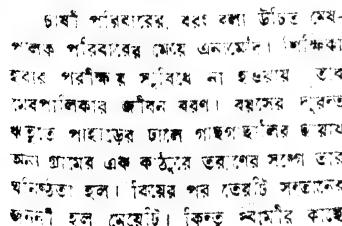 চাষী পরিবারের, বরং বলা উচিত মেষ-
পালক পরিবারের মেয়ে এনামেরি। শিক্ষিকা
হবার পরীক্ষায় সুবিধে না হওয়ায় তার
মেষপালিকার জীবন বরণ। বয়সের দুরন্ত
ঋতুতে পাহাড়ের ঢালে গাছগাছালির ছায়ায়
অন্য গ্রামের এক কাঠুরে তরুণের সঙ্গে তার
ঘনিষ্ঠতা হল। বিয়ের পর তেরটি সন্তানের
জননী হল মেয়েটি। কিন্তু স্বামীর কাছে